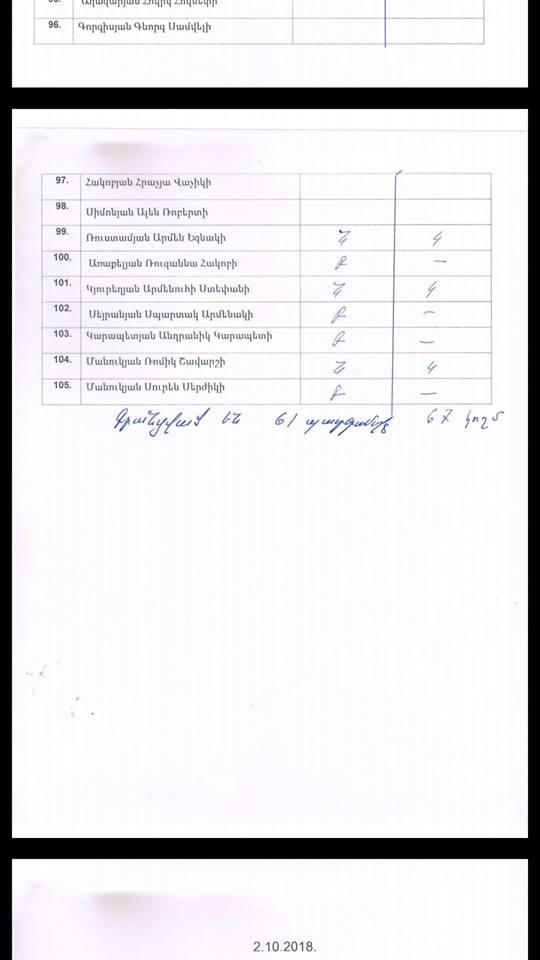 96. Գորգիսյան Գևորգ Սամվելի
97. Հակոբյան Հրաչյա Վաչիկի
98. Սիմոնյան Ալեն Ռոբերտի
99. Ռուստամյան Արմեն Եզնակի Ն Կ
100. Առաքելյան Ռուզաննա Հակոբի Բ —
101. Կյուրեղյան Արմենուհի Ստեփանի Ն Կ
102. Սեյրանյան Սպարտակ Արմենակի Բ —
103. Կարապետյան Անդրանիկ Կարապետի Բ —
104. Մանուկյան Ռոմիկ Շավարշի Ն Կ
105. Մանուկյան Սուրեն Սերժիկի Բ —
Գրանցված են 61 պատգամվոր 67 կողմ
2.10.2018.